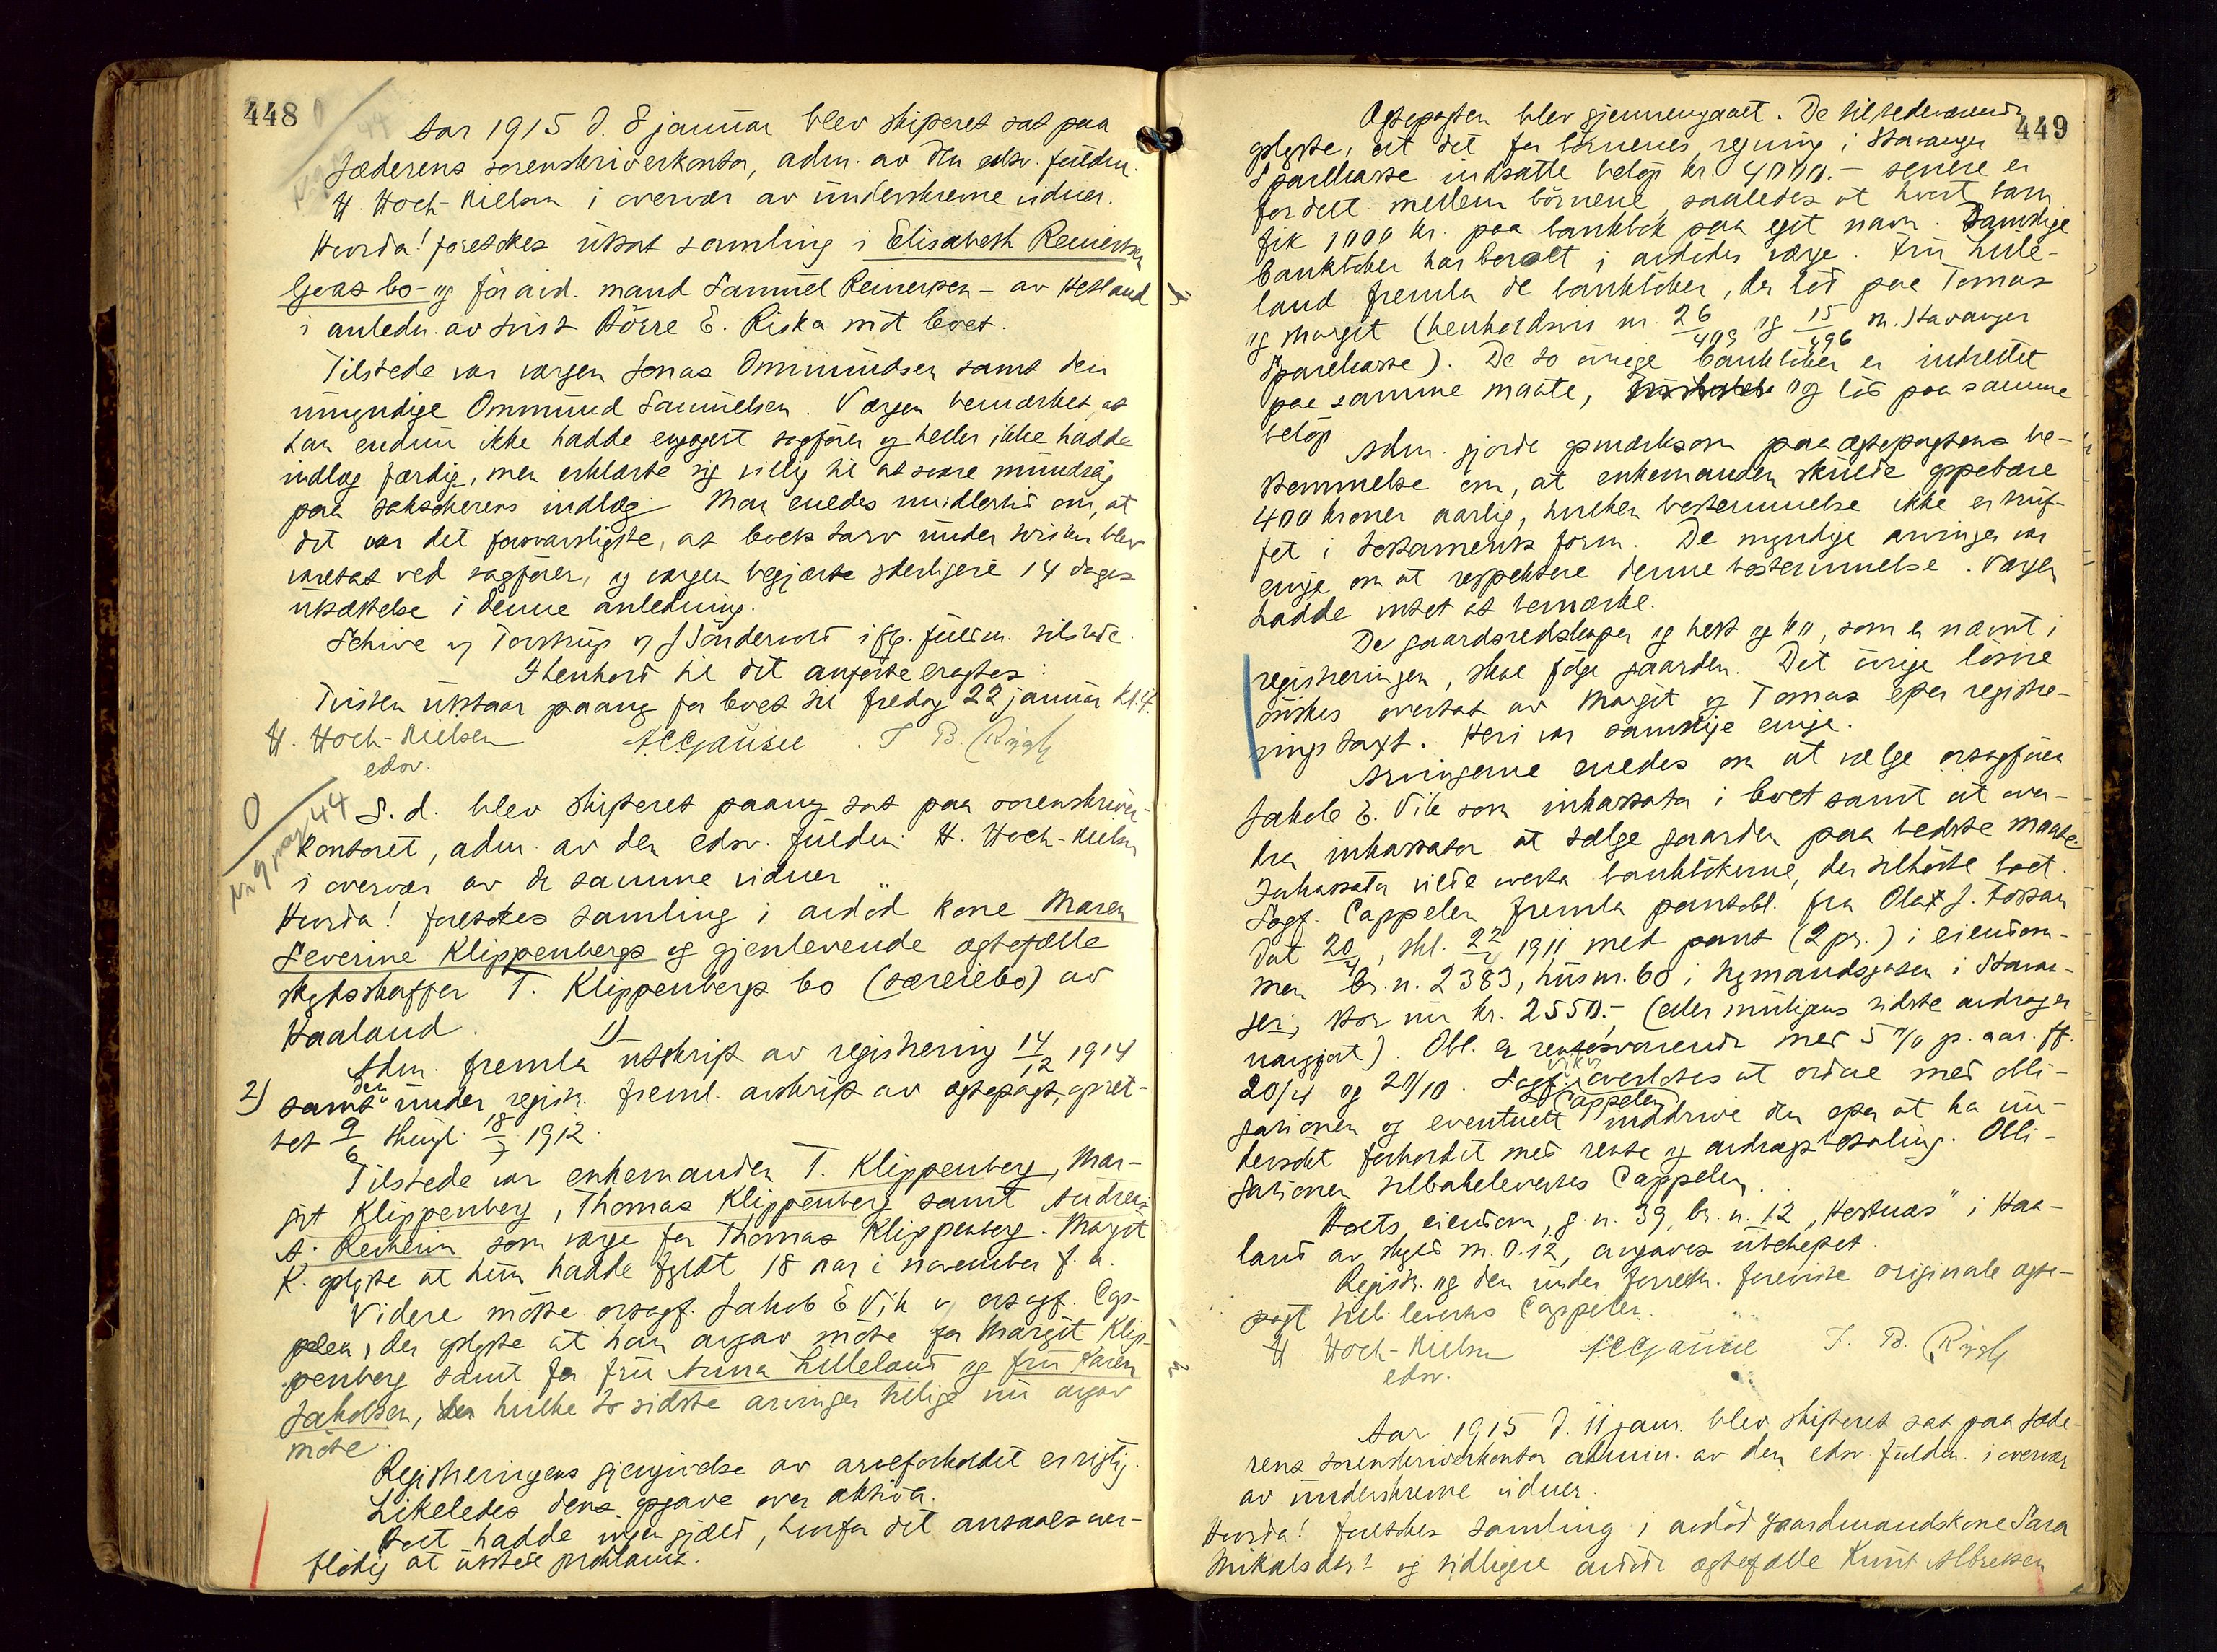 448
Aar 1915 d. 8 januar blev skifteret sat paa
Jæderens sorenskriverkontor, adm. av den edsv. fuldm.
H. Hoch-Nielsen i overvær av underskrevne vidner.
Hvorda! foretokes utsat samling i Elisabeth Reinertsen
bo- og før avd. mand Samuel Reinertsen - av Hetland
i anledn. av tvist Börre E. Riska mot boet.
Tilstede var værgen Jonas Ommundsen samt den
umyndige Ommund Samuelsen. Værgen bemærket at
han endnu ikke hadde engagert sagfører og heller ikke hadde
indlæg færdig, men erklærte sig villig til at svare mundtlig
paa saksøkerens indlæg. Man enedes imidlertid om, at
det var det forsvarligste, at boets tarv under tvisten blev
varetat ved sagfører, og værgen begjærte yderligere 14 dages
utsættelse i denne anledning.
Schive og Torstrup og J Søndervold iflg. fuldm. tilstede.
I henhold til det anførte eragtes:
Tvisten utstaar paany for boet til fredag 22 januar kl. 4.
H. Hoch-Nielsen ACGausel T. B. Rygh
edsv.
0
Nr 9 pag 44
S. d. blev skifteret paany sat paa sorenskriver-
kontoret, adm. av den edsv. fuldm. H. Hoch-Nielsen
i overvær av de samme vidner
Hvorda! foretokes samling i avdød kone Maren
Severine Klippenbergs og gjenlevende ægtefælle
skydsskaffer T. Klippenbergs bo (særeiebo) av
Haaland.
1)
Adm. fremla utskrift av registrering 14/12 1914
2) samt den under registr. freml. avskrift av ægtepagt, opret-
tet 9/6 thingl. 18/7 1912.
Tilstede var enkemanden T. Klippenberg, Mar-
git Klippenberg, Thomas Klippenberg samt Andreas
A. Reiheim som værge for Thomas Klippenberg. Margit
K. oplyste at hun hadde fyldt 18 aar i november f. a.
Videre møtte orsagf. Jakob E Vik og orsagf. Cap-
pelen, der oplyste at han avgav møte for Margit Klip-
penberg samt for fru Anna Lilleland og fru Karen
Jakobsen, hvilke to sidste arvinger tillige nu avgav
møte.
Registreringens gjengivelse av arveforholdet er rigtig.
Likeledes dens opgave over aktiva.
Boet hadde ingen gjæld, hvorfor det ansaaes over-
flødig at utstede proklama.
449
Ægtepagten blev gjennemgaaet. De tilstedeværende
oplyste, at det for børnenes regning i Stavanger
Sparekasse indsatte beløp kr. 4000.- senere er
fordelt mellem börnene saaledes at hvert barn
fik 1000 kr. paa bankbok paa eget navn. Samtlige
bankbøker har beroet i avdødes værge. Fru Lille-
land fremla de bankbøker, der lød paa Tomas
og Margit (henholdsvis nr. 26/409 og 15/496 m. Stavanger
Sparekasse). De to øvrige bankbøker er indrettet
paa samme maate, og lød paa samme
beløp.
Adm. gjorde opmerksom paa ægtepagtens be-
stemmelse om, at enkemanden skulde oppebære
400 kroner aarlig, hvilken bestemmelse ikke er truf-
fet i testaments form. De myndige arvinger var
enige om at respektere denne bestemmelse. Værgen
hadde intet at bemærke.
De gaardsredskaper og hest og ko, som er nævnt i
registreringen, skal følge gaarden. Det øvrige løsøre
ønskes overtat av Margit og Tomas efter registre-
ringstaxt. Heri var samtlige enige.
Arvingerne enedes om at vælge orsagfører
Jakob E. Vik som inkassator i boet samt at over-
dra inkassator at sælge gaarden paa bedste maate.
Inkassator vilde motta bankbøkerne, der tilhørte boet.
Sagf. Cappelen fremla pantobl. fra Olaf J. Tossan
dat 20/4, thl. 22/4 1911 med pant (2 pr.) i eiendom-
men br.n. 2383, husnr. 60 i Nymandsgaten i Stavan-
ger, stor nu kr. 2550.- (eller muligens sidste avdrag er
uavgjort). Obl. er rentesvarende med 5 % p. aar. ff.
20/4 og 20/10. Sagf. Cappelen overlates at ordne med obli-
gationen og eventuelt inddrive den efter at ha un-
dersøkt forholdet med rente og avdragsbetaling. Obli-
gationen tilbakeleveres Cappelen.
Boets eiendom, g.n. 39, br.n. 12 "Hestnæs" i Haa-
land av skyld m. 0.12, avgaves utbeheftet.
Registr. og den under forretn. foreviste originale ægte-
pagt tilb. leveres Cappelen.
H. Hoch-Nielsen ACGausel T. B. Rygh
edsv.
Aar 1915 d. 11 janr. blev skifteret sat paa Jæde-
rens sorenskriverkontor admin. av den edsv. fuldm. i overvær
av underskrevne vidner.
Hvorda! foretokes samling i avdød gaardmandskone Sara
Mikalsdtr.s og tidligere avdøde ægtefælle Knut Albretsen